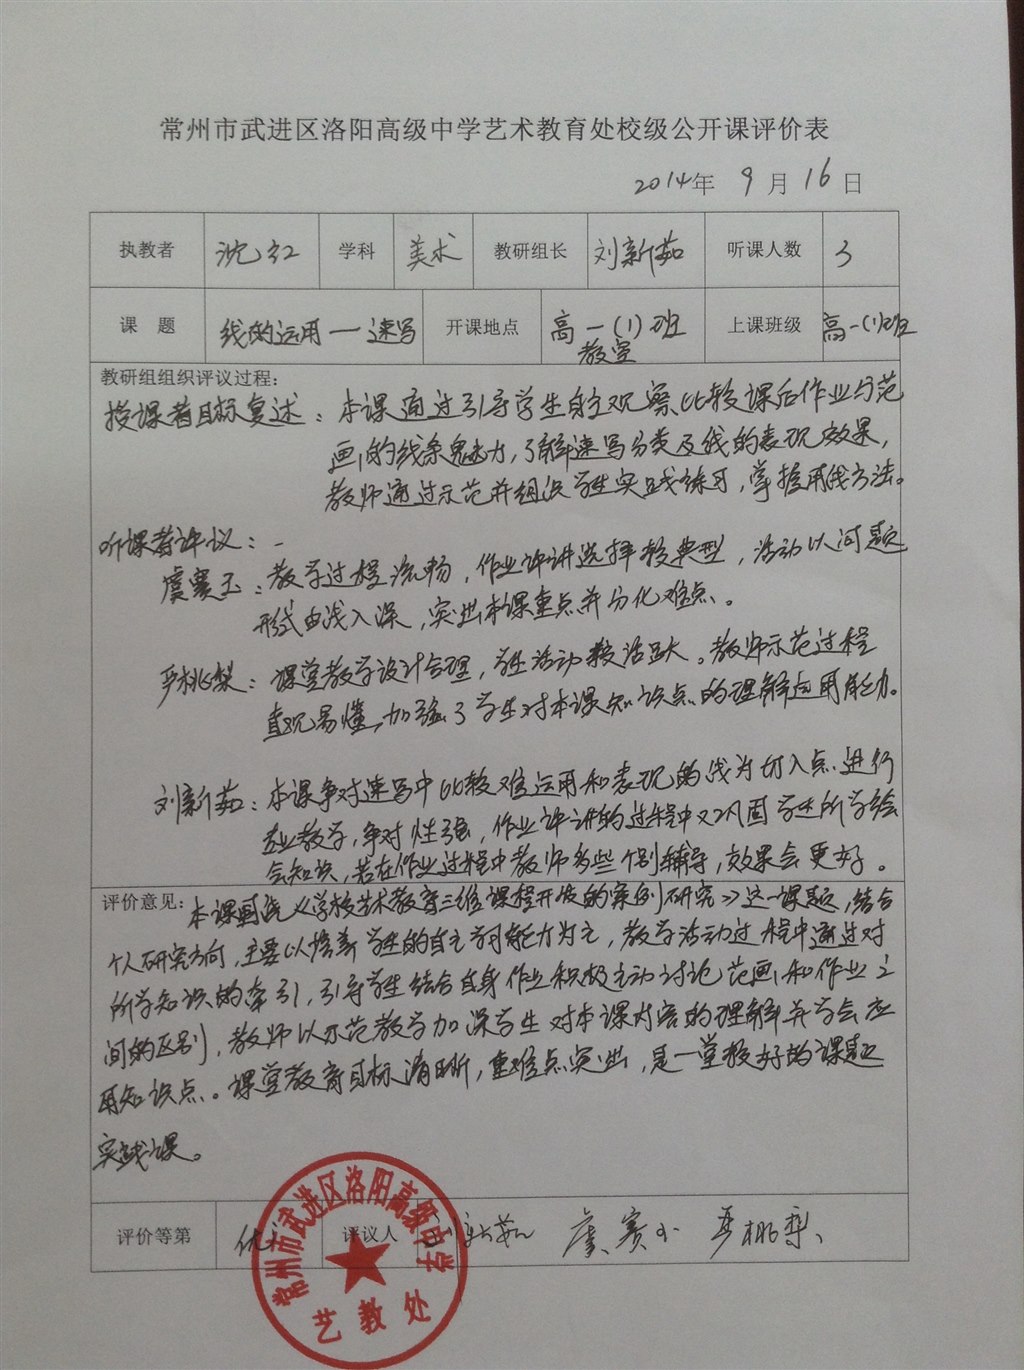 常州市武进区洛阳高级中学艺术教育处校级公开课评价表
2014年 9 月 16 日
执教者 沈红 学科 美术 教研组长 刘新茹 听课人数 3
课 题 线的运用—速写 开课地点 高一(1)班教室 上课班级 高一(1)班
教研组组织评议过程:
授课者目标复述:本课通过引导学生自主观察、比较课后作业与范
画的线条魅力,了解速写分类及线的表现效果,
教师通过示范并组织学生实践练习,掌握用线方法。
听课者评议:
虞赛玉:教学过程流畅,作业评讲选择较典型,活动以问题
形式由浅入深,突出本课重点并分化难点。
严桃梨:课堂教学设计合理,学生活动较活跃。教师示范过程
直观易懂,加强了学生对本课知识点的理解应用能力。
刘新茹:本课争对速写中比较难运用和表现的线为切入点进行
专业教学,争对性强,作业评讲的过程中又巩固学生所学绘
会知识,若在作业过程中教师多些个别辅导,效果会更好。
评价意见:本课围绕《学校艺术教育三维课程开发的案例研究》这一课题,结合
个人研究方向,主要以培养学生的自主学习能力为主,教学活动过程中通过对
所学知识的牵引,引导学生结合自身作业积极主动讨论范画和作业之
间的区别,教师以示范教学加深学生对本课内容的理解并学会应
用知识点。课堂教育目标清晰,重难点突出,是一堂较好的课题
实践课。
评价等第 优 评议人 刘新茹 虞赛玉 严桃梨
常州市武进区洛阳高级中学
艺教处